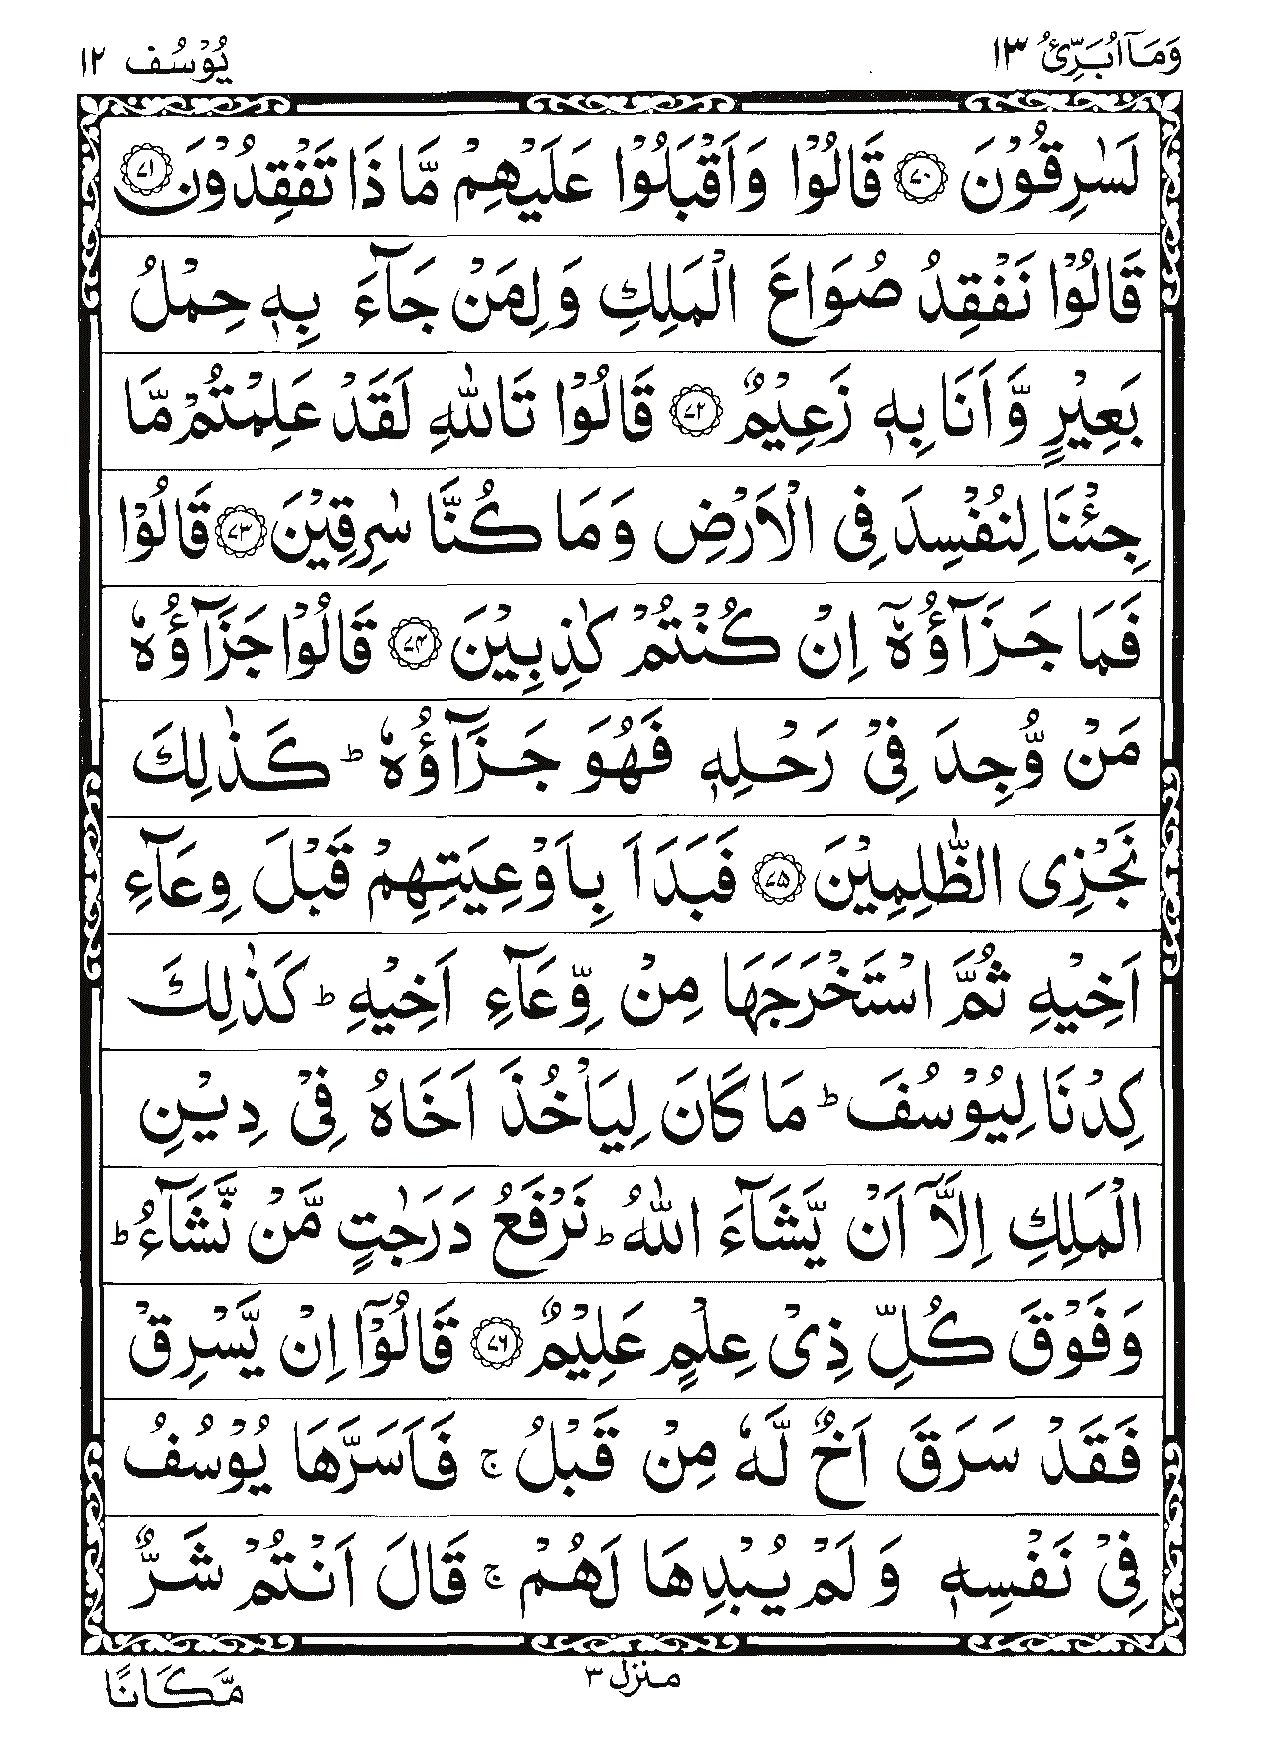 وَمَآ اُبَرِّئُ ١٣
يُوْسُف ١٢
لَسٰرِقُوْنَ ﴿۷۰﴾ قَالُوْا وَاَقْبَلُوْا عَلَيْهِمْ مَّا ذَا تَفْقِدُوْنَ ﴿۷۱﴾
قَالُوْا نَفْقِدُ صُوَاعَ الْمَلِكِ وَ لِمَنْ جَآءَ بِهٖ حِمْلُ
بَعِيْرٍ وَّ اَنَا بِهٖ زَعِيْمٌ ﴿۷۲﴾ قَالُوْا تَاللّٰهِ لَقَدْ عَلِمْتُمْ مَّا
جِئْنَا لِنُفْسِدَ فِى الْاَرْضِ وَ مَا كُنَّا سٰرِقِيْنَ ﴿۷۳﴾ قَالُوْا
فَمَا جَزَآؤُهٗۤ اِنْ كُنْتُمْ كٰذِبِيْنَ ﴿۷۴﴾ قَالُوْا جَزَآؤُهٗ
مَنْ وُّجِدَ فِىْ رَحْلِهٖ فَهُوَ جَزَآؤُهٗ ؕ كَذٰلِكَ
نَجْزِى الظّٰلِمِيْنَ ﴿۷۵﴾ فَبَدَاَ بِاَوْعِيَتِهِمْ قَبْلَ وِعَآءِ
اَخِيْهِ ثُمَّ اسْتَخْرَجَهَا مِنْ وِّعَآءِ اَخِيْهِ ؕ كَذٰلِكَ
كِدْنَا لِيُوْسُفَ ؕ مَا كَانَ لِيَاْخُذَ اَخَاهُ فِىْ دِيْنِ
الْمَلِكِ اِلَّاۤ اَنْ يَّشَآءَ اللّٰهُ ؕ نَرْفَعُ دَرَجٰتٍ مَّنْ نَّشَآءُ ؕ
وَفَوْقَ كُلِّ ذِىْ عِلْمٍ عَلِيْمٌ ﴿۷۶﴾ قَالُوْۤا اِنْ يَّسْرِقْ
فَقَدْ سَرَقَ اَخٌ لَّهٗ مِنْ قَبْلُ ۚ فَاَسَرَّهَا يُوْسُفُ
فِىْ نَفْسِهٖ وَ لَمْ يُبْدِهَا لَهُمْ ۚ قَالَ اَنْتُمْ شَرٌّ
منزل ٣
مَّكَانًا